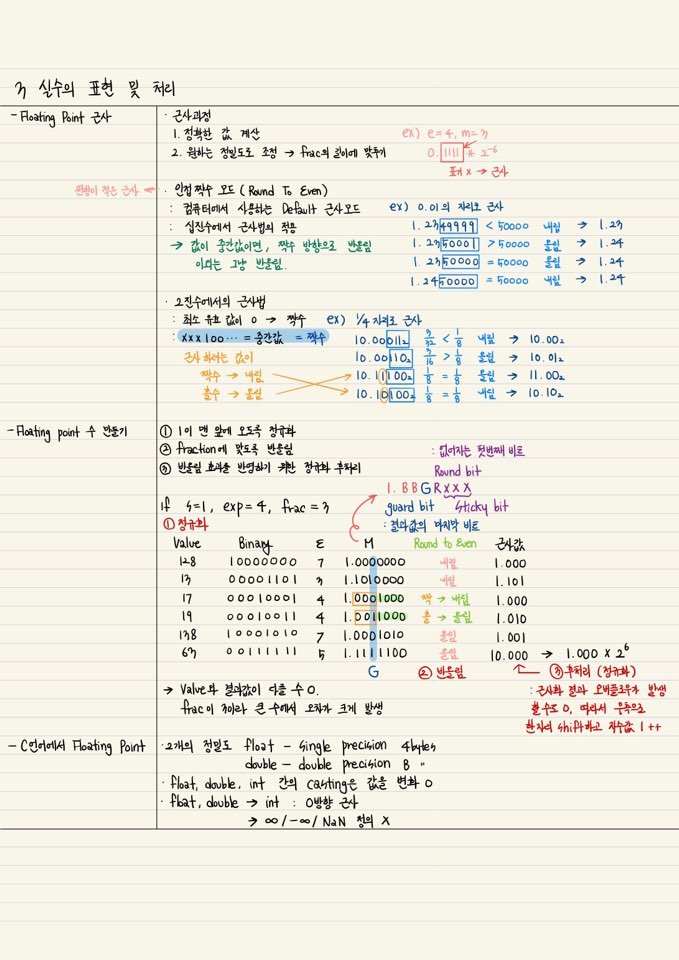 3 실수의 표현 및 처리
- Floating Point 근사
· 근사과정
1. 정확한 값 계산
2. 원하는 정밀도로 조정 → frac의 길이에 맞추기
ex) e=4, m=3
0.1111 * 2⁻⁶
표기 x → 근사
편향이 적은 근사 ←
· 인접 짝수 모드 (Round To Even)
: 컴퓨터에서 사용하는 Default 근사모드
: 십진수에서 근사법의 적용
→ 값이 중간값이면, 짝수 방향으로 반올림
이외는 그냥 반올림.
ex) 0.01의 자리로 근사
1.2349999 < 50000 내림 → 1.23
1.2350001 > 50000 올림 → 1.24
1.2350000 = 50000 올림 → 1.24
1.2450000 = 50000 내림 → 1.24
· 2진수에서의 근사법
: 최소 유효 값이 0 → 짝수
: xxx100··· = 중간값 = 짝수
근사 하려는 값이
짝수 → 내림
홀수 → 올림
ex) 1/4 자리로 근사
10.00011₂ 3/32 < 1/8 내림 → 10.00₂
10.00110₂ 3/16 > 1/8 올림 → 10.01₂
10.11100₂ 1/8 = 1/8 올림 → 11.00₂
10.10100₂ 1/8 = 1/8 내림 → 10.10₂
- Floating point 수 만들기
① 1이 맨 앞에 오도록 정규화
② fraction에 맞도록 반올림
③ 반올림 효과를 반영하기 위한 정규화 후처리
: 없어지는 첫번째 비트
Round bit
1.BBGRXXX
guard bit sticky bit
: 결과값의 마지막 비트
if s=1, exp=4, frac=3
① 정규화
Value Binary E M Round to Even 근사값
128 10000000 7 1.0000000 내림 1.000
13 00001101 3 1.1010000 내림 1.101
17 00010001 4 1.0001000 짝 → 내림 1.000
19 00010011 4 1.0011000 홀 → 올림 1.010
138 10001010 7 1.0001010 올림 1.001
63 00111111 5 1.1111100 올림 10.000 → 1.000 x 2⁶
G ② 반올림 ③ 후처리 (정규화)
: 근사화 결과 오버플로우가 발생
할수도 0, 따라서 우측으로
한자리 shift하고 지수값 1 ++
→ Value와 결과값이 다를 수 0.
frac이 3이라 큰 수에서 오차가 크게 발생
- C언어에서 Floating Point
· 2개의 정밀도 float - single precision 4bytes
double - double precision 8 〃
· float, double, int 간의 casting은 값을 변화 0
· float, double → int : 0방향 근사
→ ∞/-∞/NaN 정의 X